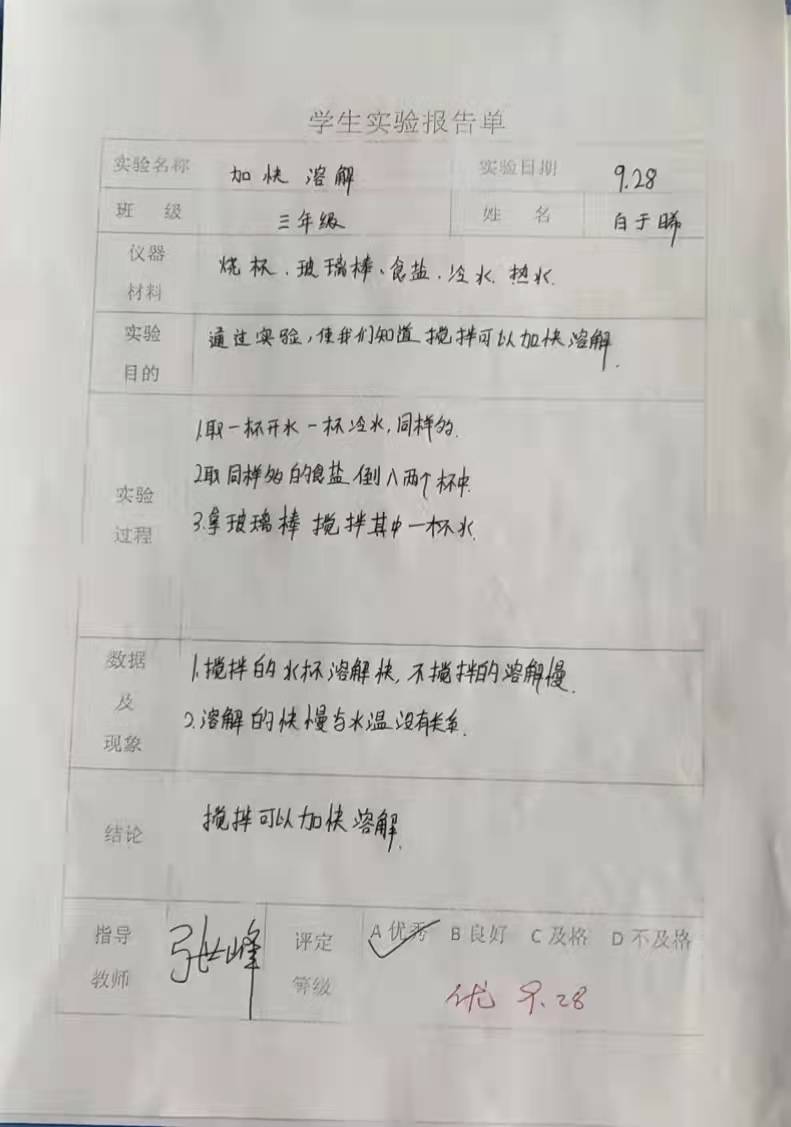 学生实验报告单
实验名称 加快溶解 实验日期 9.28
班 级 三年级 姓 名 白于晞
仪器 烧杯、玻璃棒、食盐、冷水、热水.
材料
实验 通过实验,使我们知道搅拌可以加快溶解.
目的
1.取一杯开水一杯冷水,同样多.
2.取同样多的食盐倒入两个杯中.
实验
3.拿玻璃棒搅拌其中一杯水.
过程
数据 1.搅拌的水杯溶解快,不搅拌的溶解慢.
及
2.溶解的快慢与水温没有关系.
现象
结论 搅拌可以加快溶解.
指导 评定 A优秀 B良好 C及格 D不及格
教师 等级 优 9.28